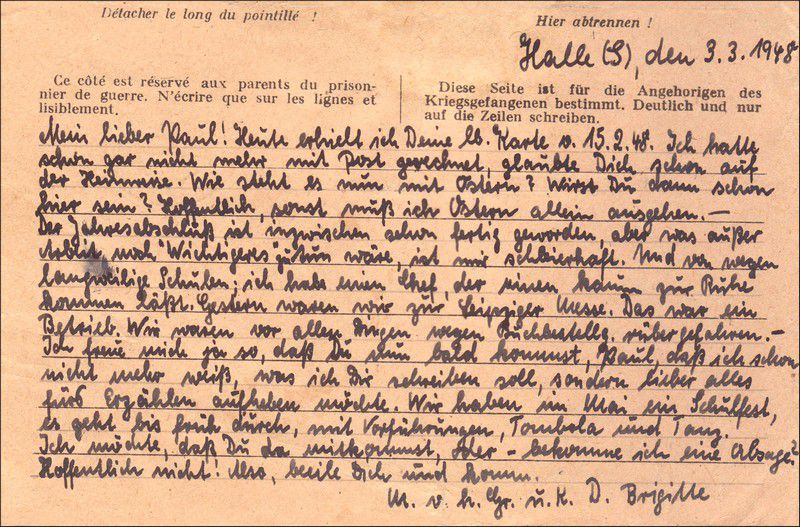 Détacher le long du pointillé !
Hier abtrennen !
Halle (S), den 3.3.1948
Ce côté est réservé aux parents du prison-
nier de guerre. N'écrire que sur les lignes et
lisiblement.
Diese Seite ist für die Angehorigen des
Kriegsgefangenen bestimmt. Deutlich und nur
auf die Zeilen schreiben.
Mein lieber Paul! Heute erhielt ich Deine lb. Karte v. 15.2.48. Ich hatte
schon gar nicht mehr mit Post gerechnet, glaubte Dich schon auf
der Heimreise. Wie steht es nun mit Ostern? Wirst Du dann schon
hier sein? Hoffentlich, sonst muß ich Ostern allein ausgehen.—
Der Jahresabschluß ist inzwischen schon fertig geworden, aber was außer
Arbeit noch "Wichtigeres" zu tun wäre, ist mir schleierhaft. Und von wegen
langweilige Schuben; ich habe einen Chef, der einen kaum zur Ruhe
kommen läßt. Gestern waren wir zur Leipziger Messe. Das war ein
Betrieb. Wir waren vor allen Dingen wegen Buchbestellg. rübergefahren.—
Ich freue mich ja so, daß Du nun bald kommst, Paul, daß ich schon
nicht mehr weiß, was ich Dir schreiben soll, sondern lieber alles
fürs Erzählen aufheben möchte. Wir haben im Mai ein Schulfest,
es geht bis früh durch, mit Vorführungen, Tombola und Tanz.
Ich möchte, daß Du da mitkommst, oder - bekomme ich eine Absage?
Hoffentlich nicht! Also, beeile Dich und komm.
M. v. h. Gr. u. K. D. Brigitte